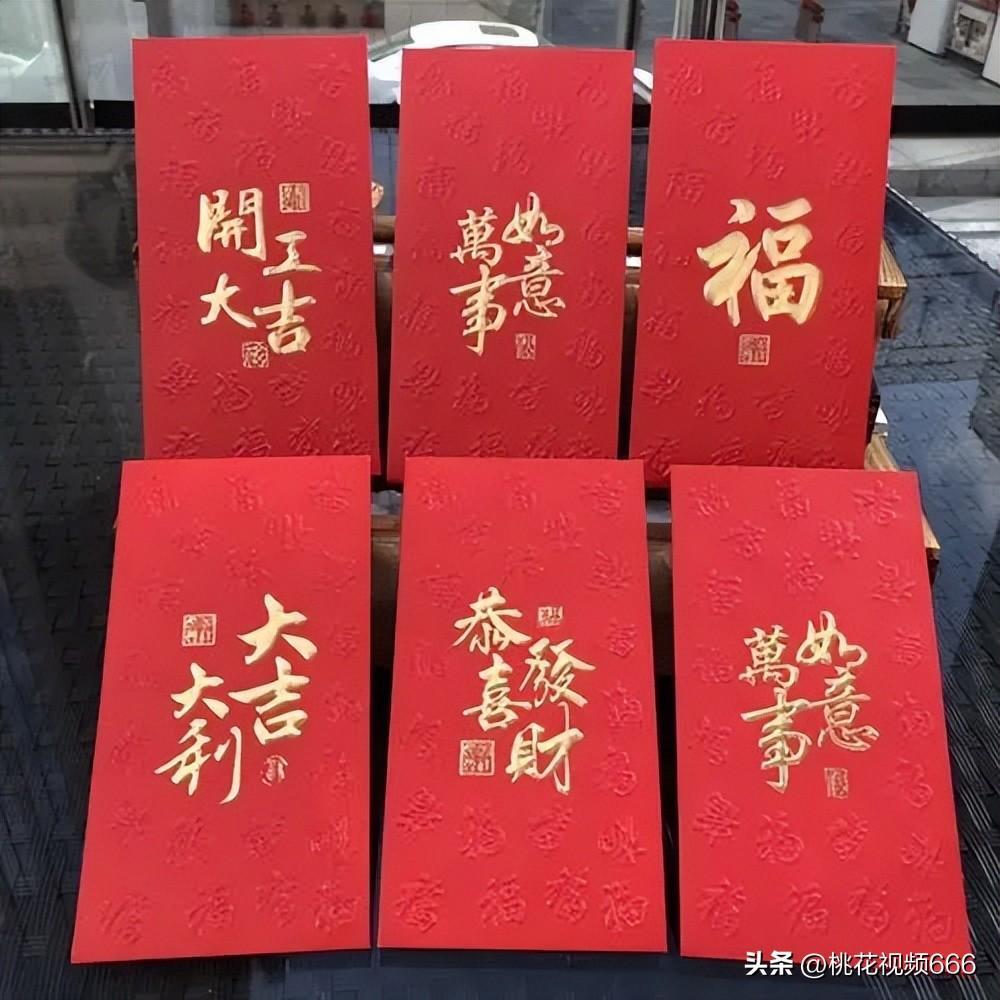 開工
大吉
萬事
如意
福
大吉
大利
恭喜
發財
萬事
如意
头条 @桃花视频666